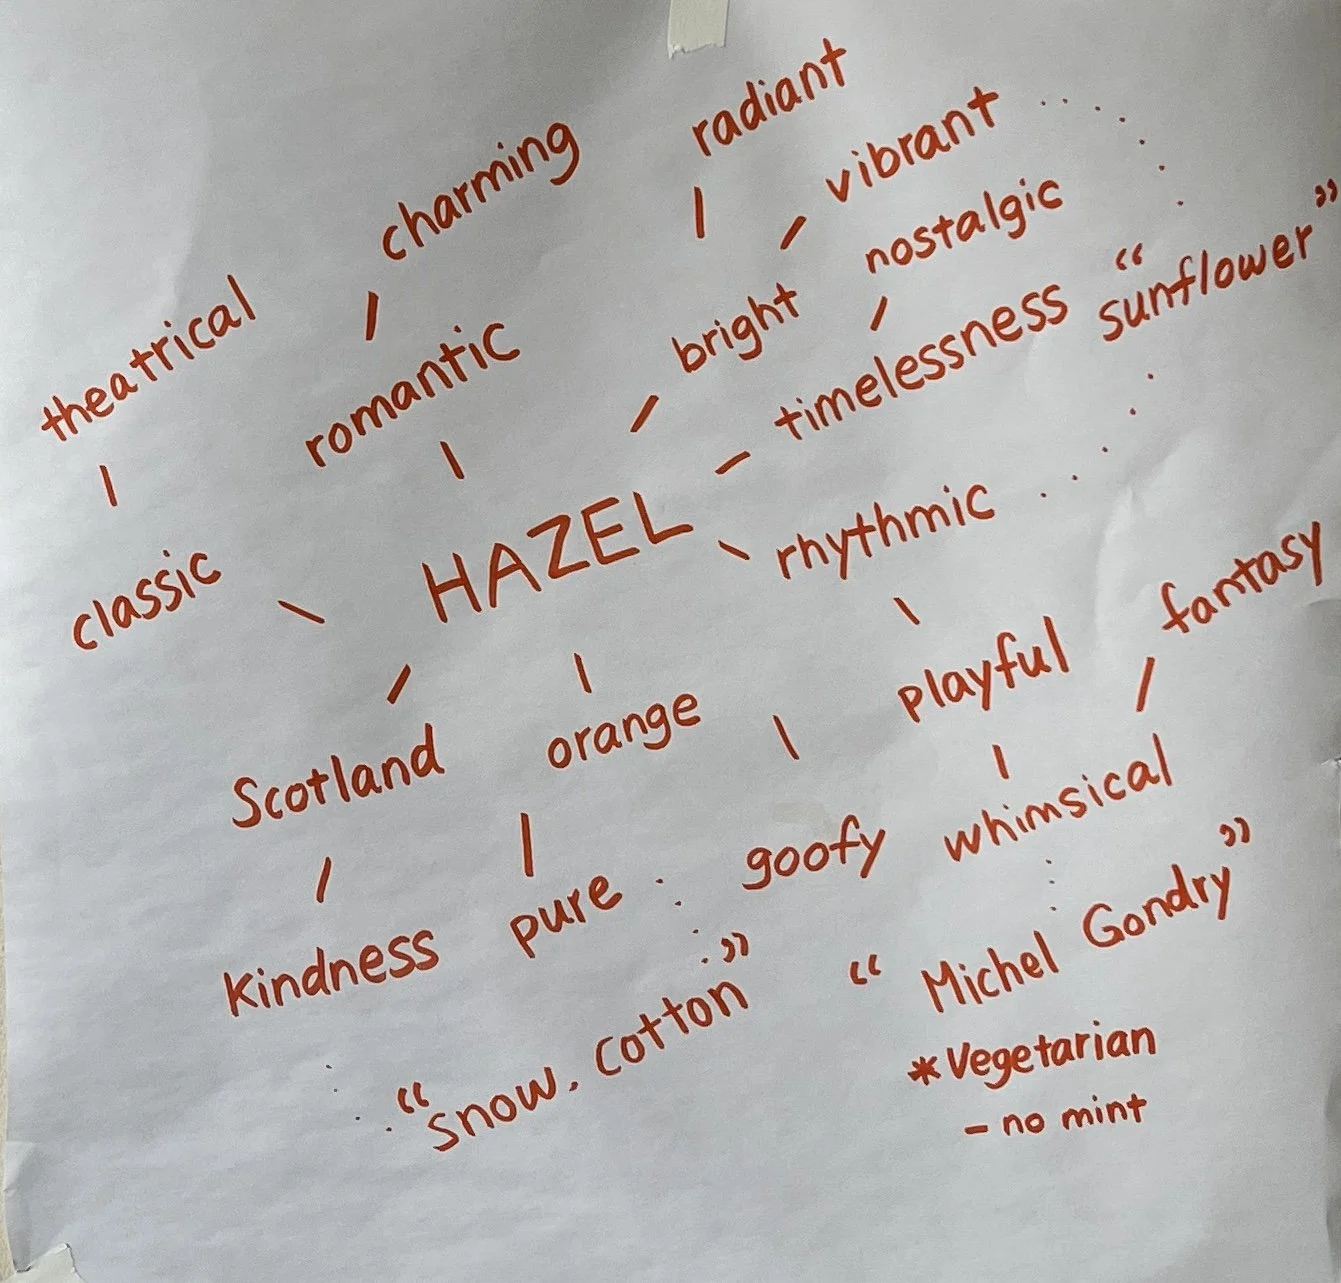 radiant
charming
vibrant
nostalgic
theatrical
romantic
bright
timelessness
“sunflower”
HAZEL
classic
rhythmic
fantasy
Scotland
orange
playful
kindness
pure
goofy
whimsical
“snow, cotton”
“Michel Gondry”
*Vegetarian
- no mint